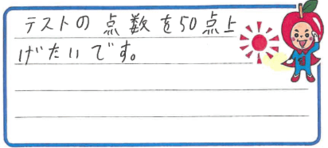 テストの点数を50点上
げたいです。